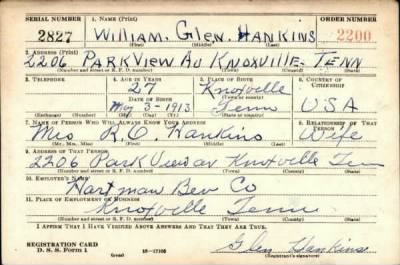 SERIAL NUMBER 1. NAME (Print) ORDER NUMBER
2827 William. Glen. Hankins 2200
(First) (Middle) (Last)
2. ADDRESS (Print)
2206 PARK View Av KNOXVILLE. TENN
(Number and street or R. F. D. number) (Town) (County) (State)
3. TELEPHONE 4. AGE IN YEARS 5. PLACE OF BIRTH 6. COUNTRY OF CITIZENSHIP
27 Knoxville
DATE OF BIRTH (Town or county)
May 3-1913 Tenn USA
(Mo.) (Day) (Yr.) (State or country)
7. NAME OF PERSON WHO WILL ALWAYS KNOW YOUR ADDRESS 8. RELATIONSHIP OF THAT PERSON
Mrs R.C. Hankins Wife
(Mr., Mrs., Miss) (First) (Middle) (Last)
9. ADDRESS OF THAT PERSON
2206 Park View av Knoxville Tenn
(Number and street or R. F. D. number) (Town) (County) (State)
10. EMPLOYER'S NAME
Hartman Bev Co
11. PLACE OF EMPLOYMENT OR BUSINESS
Knoxville Tenn
(Number and street or R. F. D. number) (Town) (County) (State)
I AFFIRM THAT I HAVE VERIFIED ABOVE ANSWERS AND THAT THEY ARE TRUE.
REGISTRATION CARD
D. S. S. Form 1 (over) Glen Hankins
(Registrant's signature)